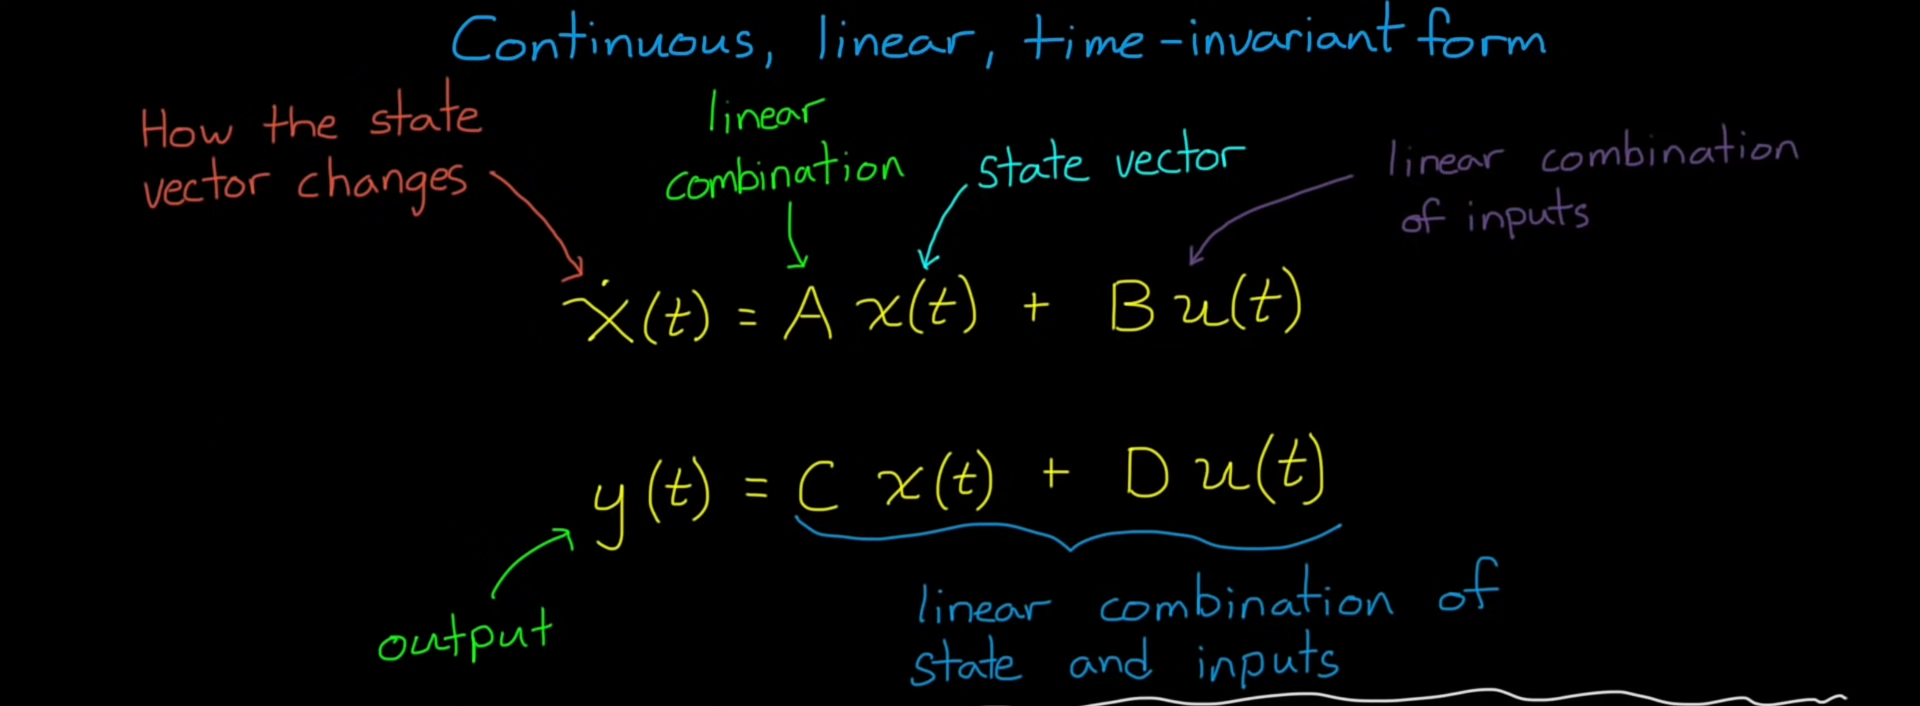 Continuous, linear, time-invariant form
How the state
vector changes
linear
combination
state vector
linear combination
of inputs
ẋ(t) = A x(t) + B u(t)
y(t) = C x(t) + D u(t)
output
linear combination of
state and inputs